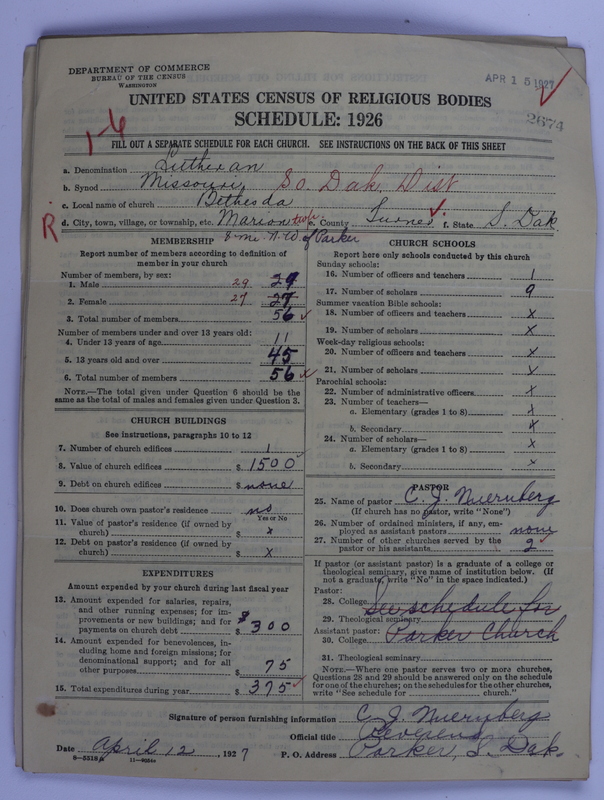 DEPARTMENT OF COMMERCE
BUREAU OF THE CENSUS
WASHINGTON
APR 15 1927
UNITED STATES CENSUS OF RELIGIOUS BODIES
SCHEDULE: 1926
2674
1-6
FILL OUT A SEPARATE SCHEDULE FOR EACH CHURCH. SEE INSTRUCTIONS ON THE BACK OF THIS SHEET
a. Denomination Lutheran
b. Synod Missouri, So. Dak. Dist
c. Local name of church Bethesda
R
d. City, town, village, or township, etc. Marion twp. e. County Turner f. State S. Dak
8 mi. N.W. of Parker
MEMBERSHIP
Report number of members according to definition of member in your church
Number of members, by sex:
1. Male 29 29
2. Female 27 27
3. Total number of members 56
Number of members under and over 13 years old:
4. Under 13 years of age 11
5. 13 years old and over 45
6. Total number of members 56
NOTE.—The total given under Question 6 should be
same as the total of males and females given under Question 3.
CHURCH BUILDINGS
See instructions, paragraphs 10 to 12
7. Number of church edifices 1
8. Value of church edifices $ 1500
9. Debt on church edifices $ none
10. Does church own pastor's residence no
Yes or No
11. Value of pastor's residence (if owned by
church) $ x
12. Debt on pastor's residence (if owned by
church) $ x
EXPENDITURES
Amount expended by your church during last fiscal year
13. Amount expended for salaries, repairs,
and other running expenses; for im-
provements or new buildings; and for
payments on church debt $ 300
14. Amount expended for benevolences, in-
cluding home and foreign missions; for
denominational support; and for all
other purposes $ 75
15. Total expenditures during year $ 375
CHURCH SCHOOLS
Report here only schools conducted by this church
Sunday schools:
16. Number of officers and teachers 1
17. Number of scholars 9
Summer vacation Bible schools:
18. Number of officers and teachers x
19. Number of scholars x
Week-day religious schools:
20. Number of officers and teachers x
21. Number of scholars x
Parochial schools:
22. Number of administrative officers x
23. Number of teachers—
a. Elementary (grades 1 to 8) x
b. Secondary x
24. Number of scholars—
a. Elementary (grades 1 to 8) x
b. Secondary x
PASTOR
25. Name of pastor C. J. Nuernberg
(If church has no pastor, write "None")
26. Number of ordained ministers, if any, em-
ployed as assistant pastors none
27. Number of other churches served by the
pastor or his assistants 2
If pastor (or assistant pastor) is a graduate of a college or
theological seminary, give name of institution below. (If
not a graduate, write "No" in the space indicated.)
Pastor:
28. College See schedule for
29. Theological seminary
Assistant pastor: Parker Church
30. College
31. Theological seminary
NOTE.—Where one pastor serves two or more churches,
Questions 28 and 29 should be answered only on the schedule
for one of the churches; on the schedules for the other churches,
write "See schedule for church."
Signature of person furnishing information C. J. Nuernberg
Official title Reverend
Date April 12, 1927 P. O. Address Parker, S. Dak.